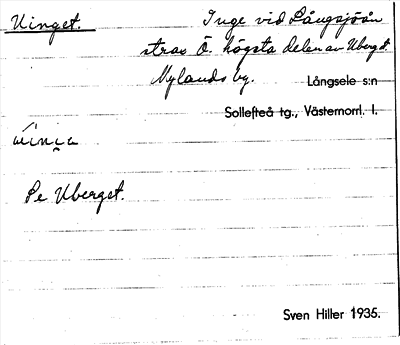 Uinget. Inge vid Långsjöån
strax Ö. högsta delen av Uberget.
Nylands by. Långsele s:n
Sollefteå tg., Västernorrl. l.
Se Uberget.
Sven Hiller 1935.